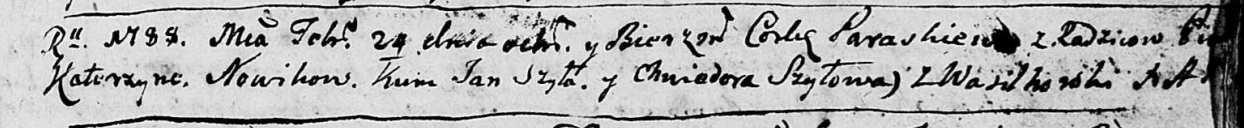 Ru. 1788. Mca Febr. 24 dnia ochr. y Bierzm Corkę Paraskiewę z Radzicow
Katerzyne. Nowikow. Kum Jan Szyła. y Chwiedora Szyłowa) z Wasilkowki